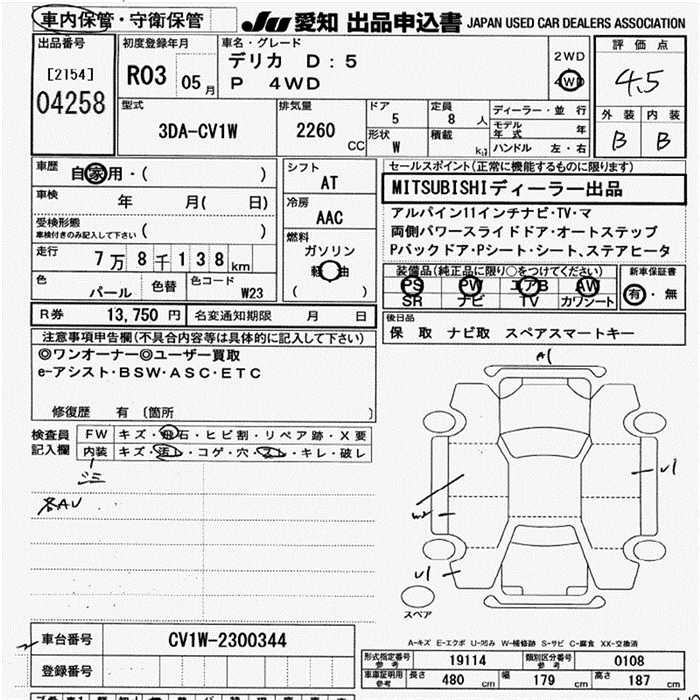 車内保管・守衛保管
JU 愛知 出品申込書 JAPAN USED CAR DEALERS ASSOCIATION
出品番号
[2154]
04258
初度登録年月
R03 05月
車名・グレード
デリカ D:5
P 4WD
2WD
4WD
評価点
4.5
外装 内装
B B
型式
3DA-CV1W
排気量
2260 CC
ドア
5
形状
W
定員
8 人
積載
kg
ディーラー・並行
モデル年式 年
ハンドル 左・右
車歴
自家用・( )
車検
年 月( 日)
受検形態
車検付きのみ記入して下さい ( )
走行
7万8千138km
色
パール
色替
色コード
W23
シフト
AT
冷房
AAC
燃料
ガソリン
軽油
( )
セールスポイント(正常に機能するものに限ります)
MITSUBISHIディーラー出品
アルパイン11インチナビ・TV・マ
両側パワースライドドア・オートステップ
Pバックドア・Pシート・シート、ステアヒータ
装備品(純正品に限り○をつけてください)
PS PW エアB AW
SR ナビ TV カワシート
新車保証書
有・無
R券 13,750円
名変通知期限 月 日
後日品
保 取 ナビ取 スペアスマートキー
注意事項申告欄(不具合内容等は具体的に記入して下さい)
◎ワンオーナー◎ユーザー買取
e-アシスト・BSW・ASC・ETC
修復歴 有 (箇所 )
検査員記入欄
FW キズ・飛石・ヒビ割・リペア跡・X要
内装 キズ・汚レ・コゲ・穴・スレ・キレ・破レ
ゴミ
各AU
A1
U1
W2
U1
スペア
A-キズ E-エクボ U-凹み W-補修跡 S-サビ C-腐食 XX-交換済
車台番号 CV1W-2300344
登録番号
形式指定番号 参考 19114
類別区分番号 参考 0108
車庫証明用 参考 長さ 480cm 幅 179cm 高さ 187cm